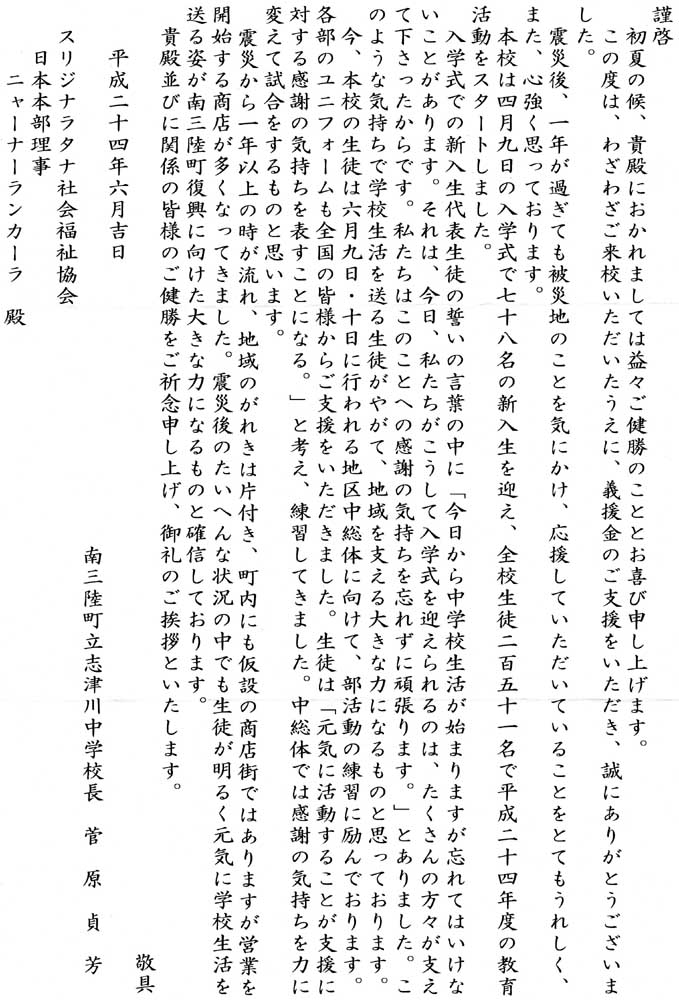 謹啓
初夏の候、貴殿におかれましては益々ご健勝のこととお喜び申し上げます。
この度は、わざわざご来校いただいたうえに、義援金のご支援をいただき、誠にありがとうございま
した。
震災後、一年が過ぎても被災地のことを気にかけ、応援していただいていることをとてもうれしく、
また、心強く思っております。
本校は四月九日の入学式で七十八名の新入生を迎え、全校生徒二百五十一名で平成二十四年度の教育
活動をスタートしました。
入学式での新入生代表生徒の誓いの言葉の中に「今日から中学校生活が始まりますが忘れてはいけな
いことがあります。それは、今日、私たちがこうして入学式を迎えられるのは、たくさんの方々が支え
て下さったからです。私たちはこのことへの感謝の気持ちを忘れずに頑張ります。」とありました。こ
のような気持ちで学校生活を送る生徒がやがて、地域を支える大きな力になるものと思っております。
今、本校の生徒は六月九日・十日に行われる地区中総体に向けて、部活動の練習に励んでおります。
各部のユニフォームも全国の皆様からご支援をいただきました。生徒は「元気に活動することが支援に
対する感謝の気持ちを表すことになる。」と考え、練習してきました。中総体では感謝の気持ちを力に
変えて試合をするものと思います。
震災から一年以上の時が流れ、地域のがれきは片付き、町内にも仮設の商店街ではありますが営業を
開始する商店が多くなってきました。震災後のたいへんな状況の中でも生徒が明るく元気に学校生活を
送る姿が南三陸町復興に向けた大きな力になるものと確信しております。
貴殿並びに関係の皆様のご健勝をご祈念申し上げ、御礼のご挨拶といたします。
敬具
平成二十四年六月吉日
南三陸町立志津川中学校長 菅原貞芳
スリジナラタナ社会福祉協会
日本本部理事
ニャーナーランカーラ 殿